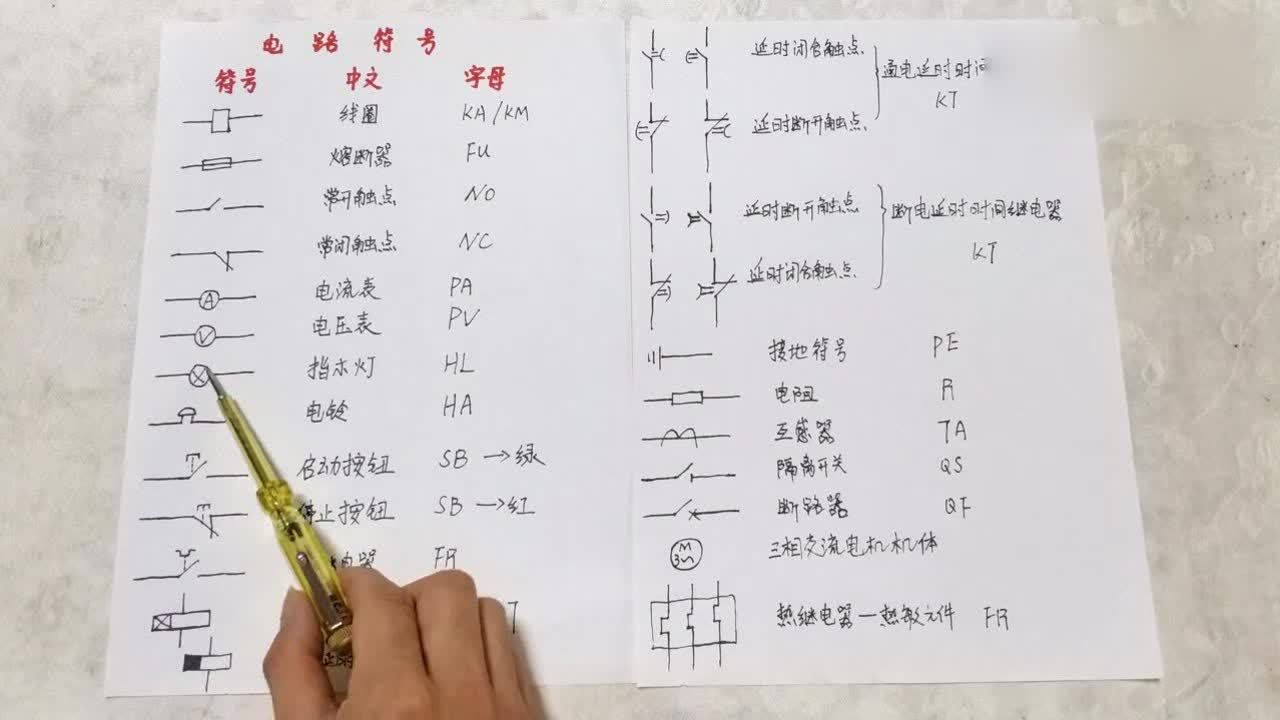 电路符号
符号 中文 字母
线圈 KA/KM
熔断器 FU
常开触点 NO
常闭触点 NC
A 电流表 PA
V 电压表 PV
指示灯 HL
电铃 HA
启动按钮 SB→绿
停止按钮 SB→红
电器 FR
T
延时闭合触点
通电延时时间
KT
延时断开触点
延时断开触点
断电延时时间继电器
KT
延时闭合触点
接地符号 PE
电阻 R
互感器 TA
隔离开关 QS
断路器 QF
M 3~ 三相交流电机机体
热继电器—热敏元件 FR